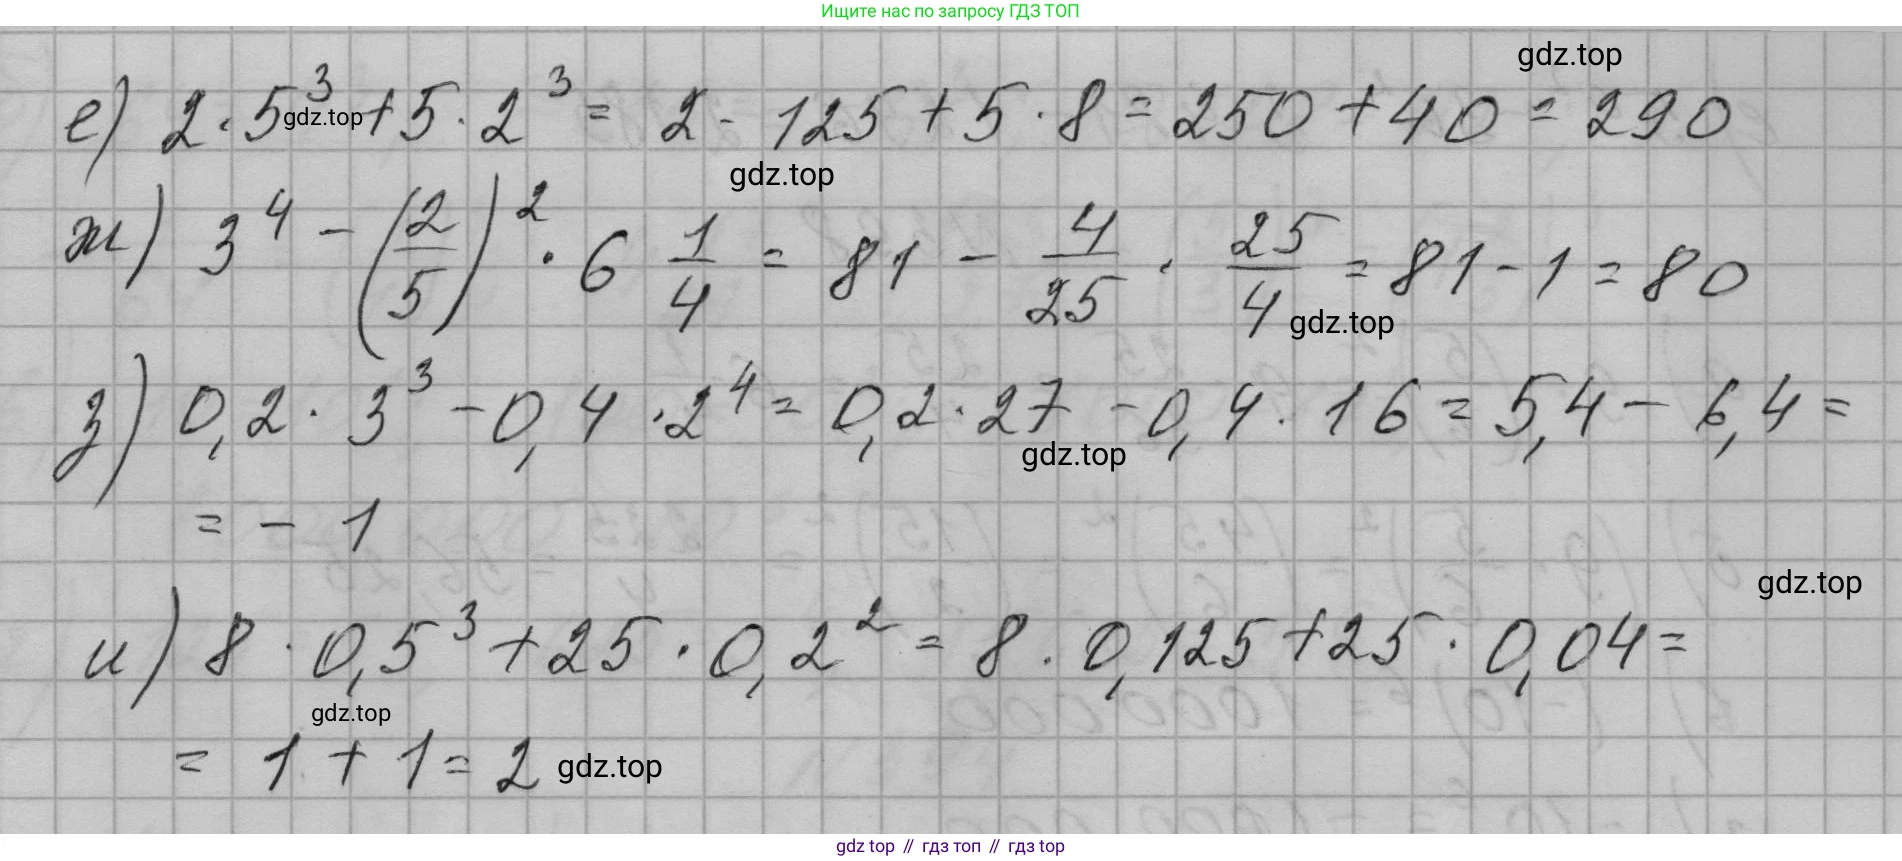 Ищите нас по запросу ГДЗ ТОП
gdz.top
е) 2 · 5³ + 5 · 2³ = 2 · 125 + 5 · 8 = 250 + 40 = 290
gdz.top
gdz.top
ж) 3⁴ - (2/5)² · 6 1/4 = 81 - 4/25 · 25/4 = 81 - 1 = 80
gdz.top
з) 0,2 · 3³ - 0,4 · 2⁴ = 0,2 · 27 - 0,4 · 16 = 5,4 - 6,4 =
gdz.top
= - 1
gdz.top
и) 8 · 0,5³ + 25 · 0,2² = 8 · 0,125 + 25 · 0,04 =
gdz.top
= 1 + 1 = 2
gdz.top
gdz top // гдз топ // гдз top